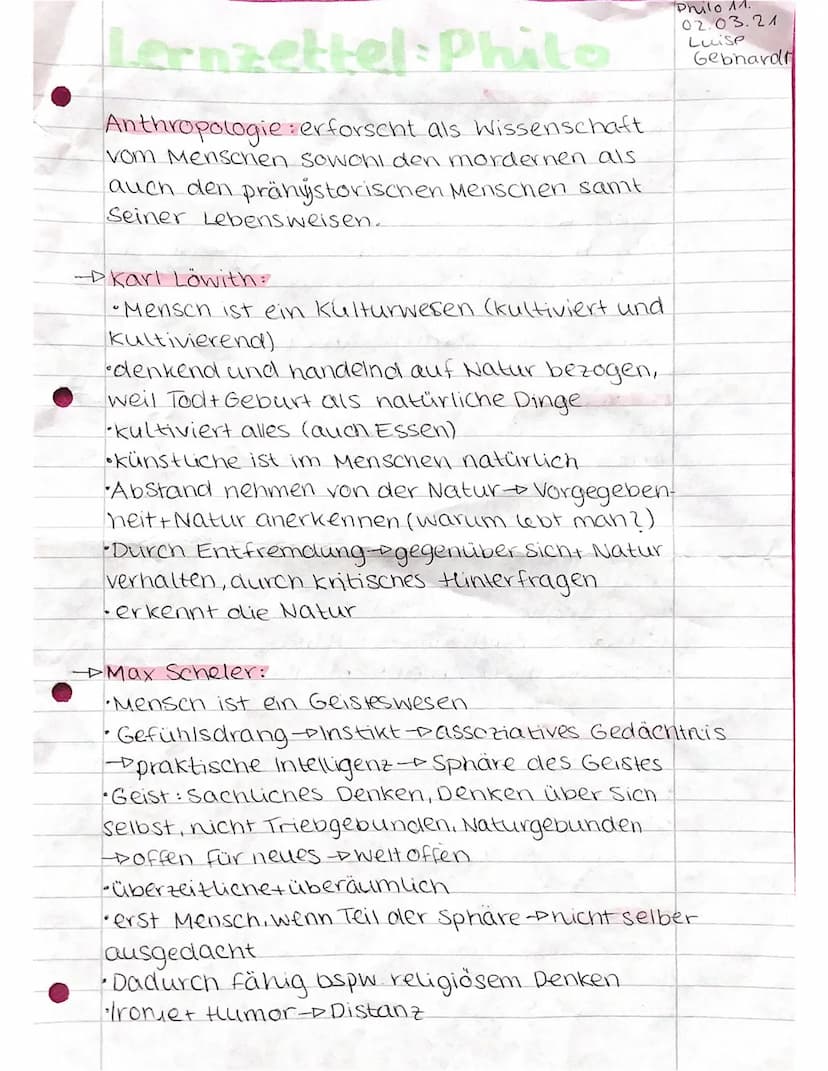 Philo 11.
02.03.21
Luise
Gebhardt
Lernzettel: Philo
Anthropologie: erforscht als Wissenschaft
vom Menschen sowohl den mordernen als
auch den prähystorischen Menschen samt
seiner Lebensweisen.
→ Karl Löwith:
• Mensch ist ein Kulturwesen (kultiviert und
kultivierend)
• denkend und handelnd auf Natur bezogen,
weil Tod + Geburt als natürliche Dinge
• kultiviert alles (auch Essen)
• künstliche ist im Menschen natürlich
• Abstand nehmen von der Natur → Vorgegeben-
heit + Natur anerkennen (warum lebt man?)
• Durch Entfremdung → gegenüber sich + Natur
verhalten, durch kritisches Hinterfragen
• erkennt die Natur
→ Max Scheler:
• Mensch ist ein Geisteswesen
• Gefühlsdrang → Instikt → assoziatives Gedächtnis
→ praktische Intelligenz → Sphäre des Geistes
• Geist: Sachliches Denken, Denken über sich
selbst, nicht Triebgebunden, Naturgebunden
→ offen für neues → weltoffen
• überzeitliche + überäumlich
• erst Mensch, wenn Teil der Sphäre → nicht selber
ausgedacht
• Dadurch fähig bspw. religiösem Denken
• Ironie + Humor → Distanz